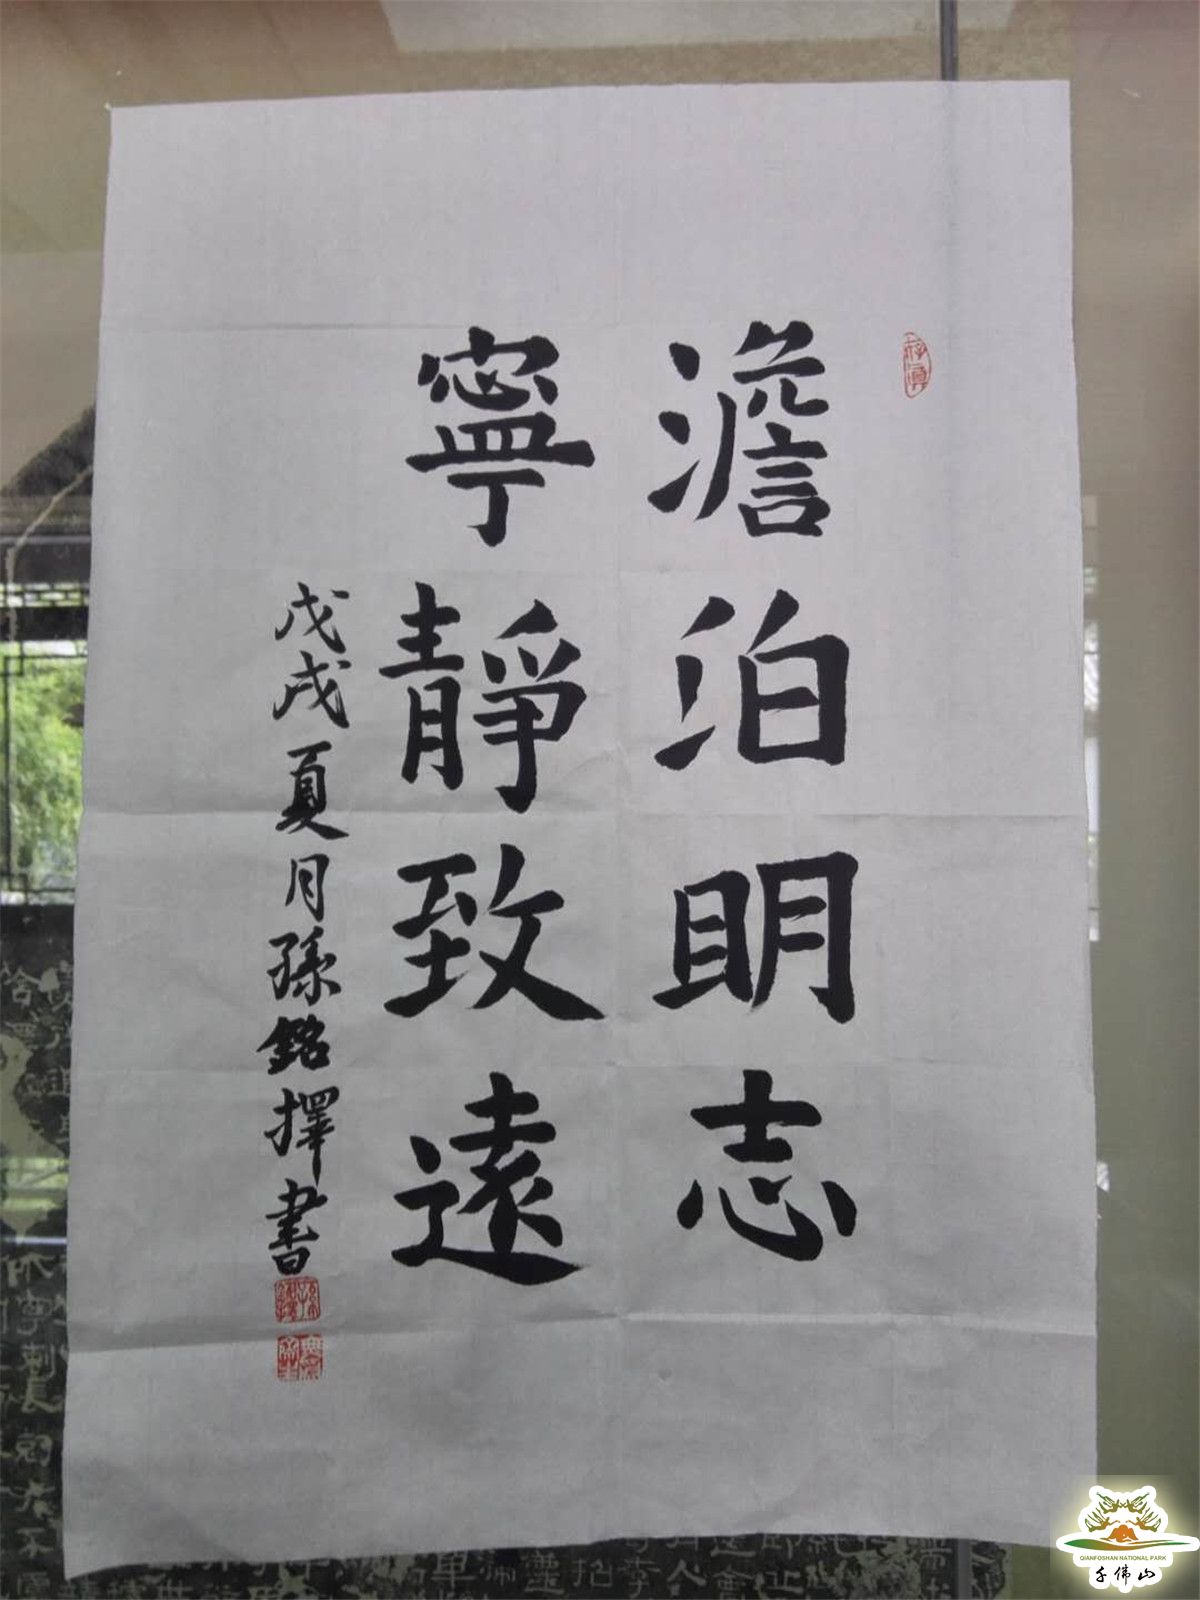 澹泊明志
寧靜致遠
戊戌夏月孫銘擇書
QIANFOSHAN NATIONAL PARK
千佛山